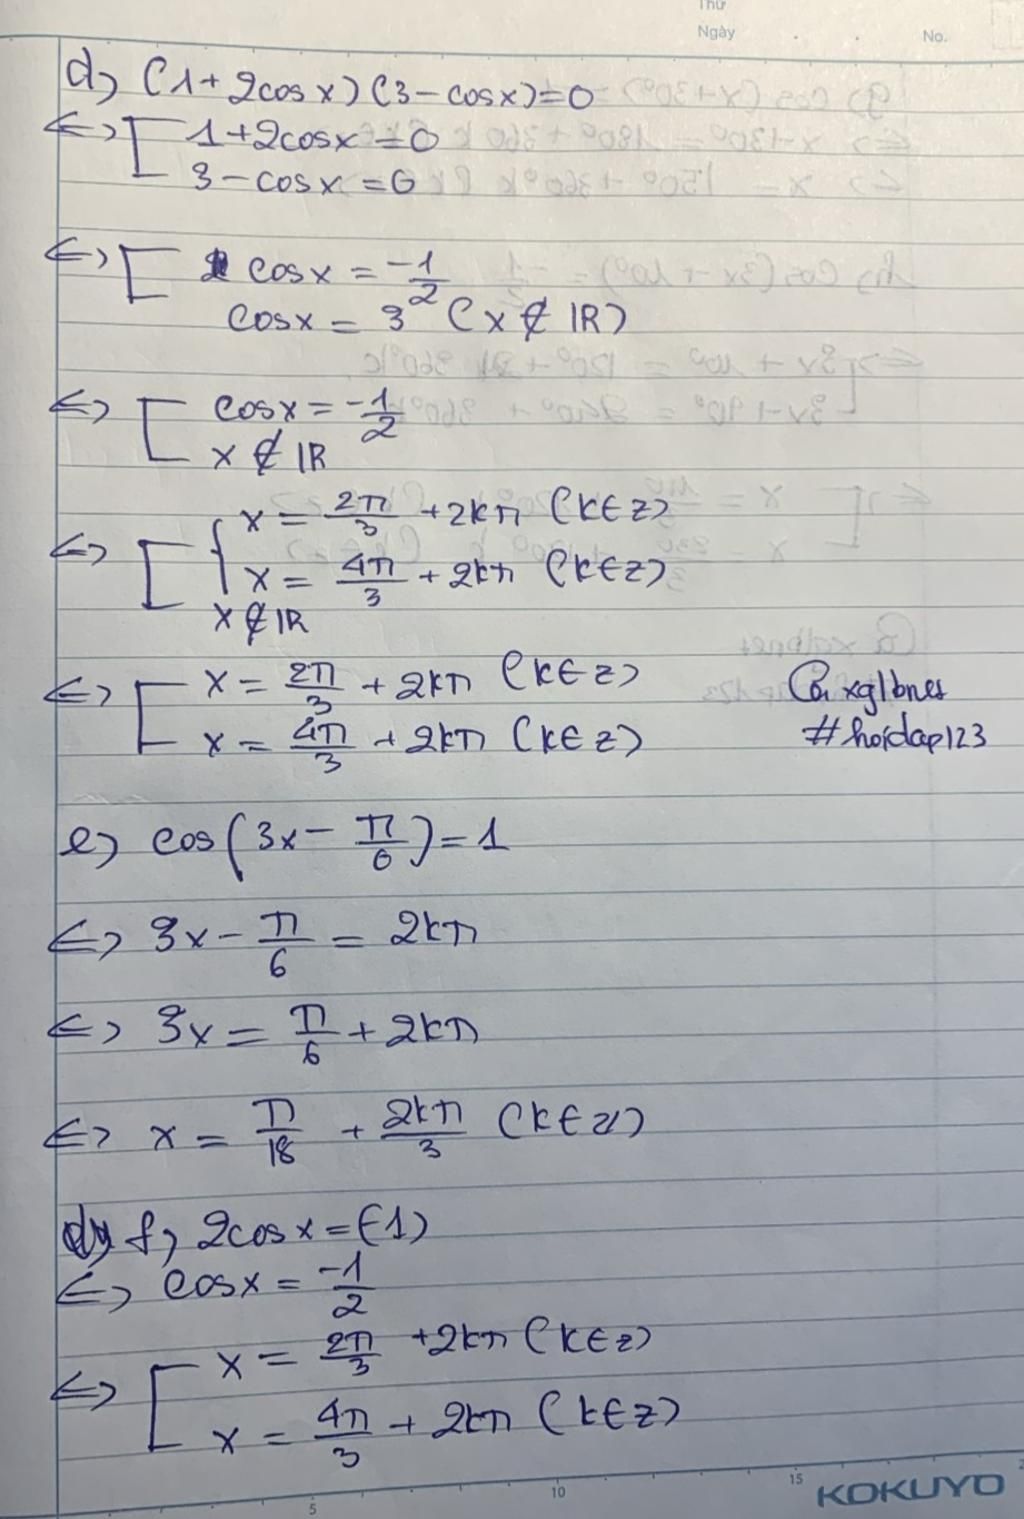 Thứ
Ngày . . No.
d) (1+2cosx)(3-cosx)=0
<=> [ 1+2cosx=0
3-cosx=0
<=> [ cosx = -1/2
cosx = 3 (x ∉ IR)
<=> [ cosx = -1/2
x ∉ IR
<=> [ { x = 2π/3 + 2kπ (k∈Z)
x = 4π/3 + 2kπ (k∈Z)
x ∉ IR
<=> [ x = 2π/3 + 2kπ (k∈Z)
x = 4π/3 + 2kπ (k∈Z)
Ca xglbnes
#hoidap123
e) cos(3x - π/6) = 1
<=> 3x - π/6 = 2kπ
<=> 3x = π/6 + 2kπ
<=> x = π/18 + 2kπ/3 (k∈Z)
f) 2cosx = (-1)
<=> cosx = -1/2
<=> [ x = 2π/3 + 2kπ (k∈Z)
x = 4π/3 + 2kπ (k∈Z)
5 10 15
KOKUYO